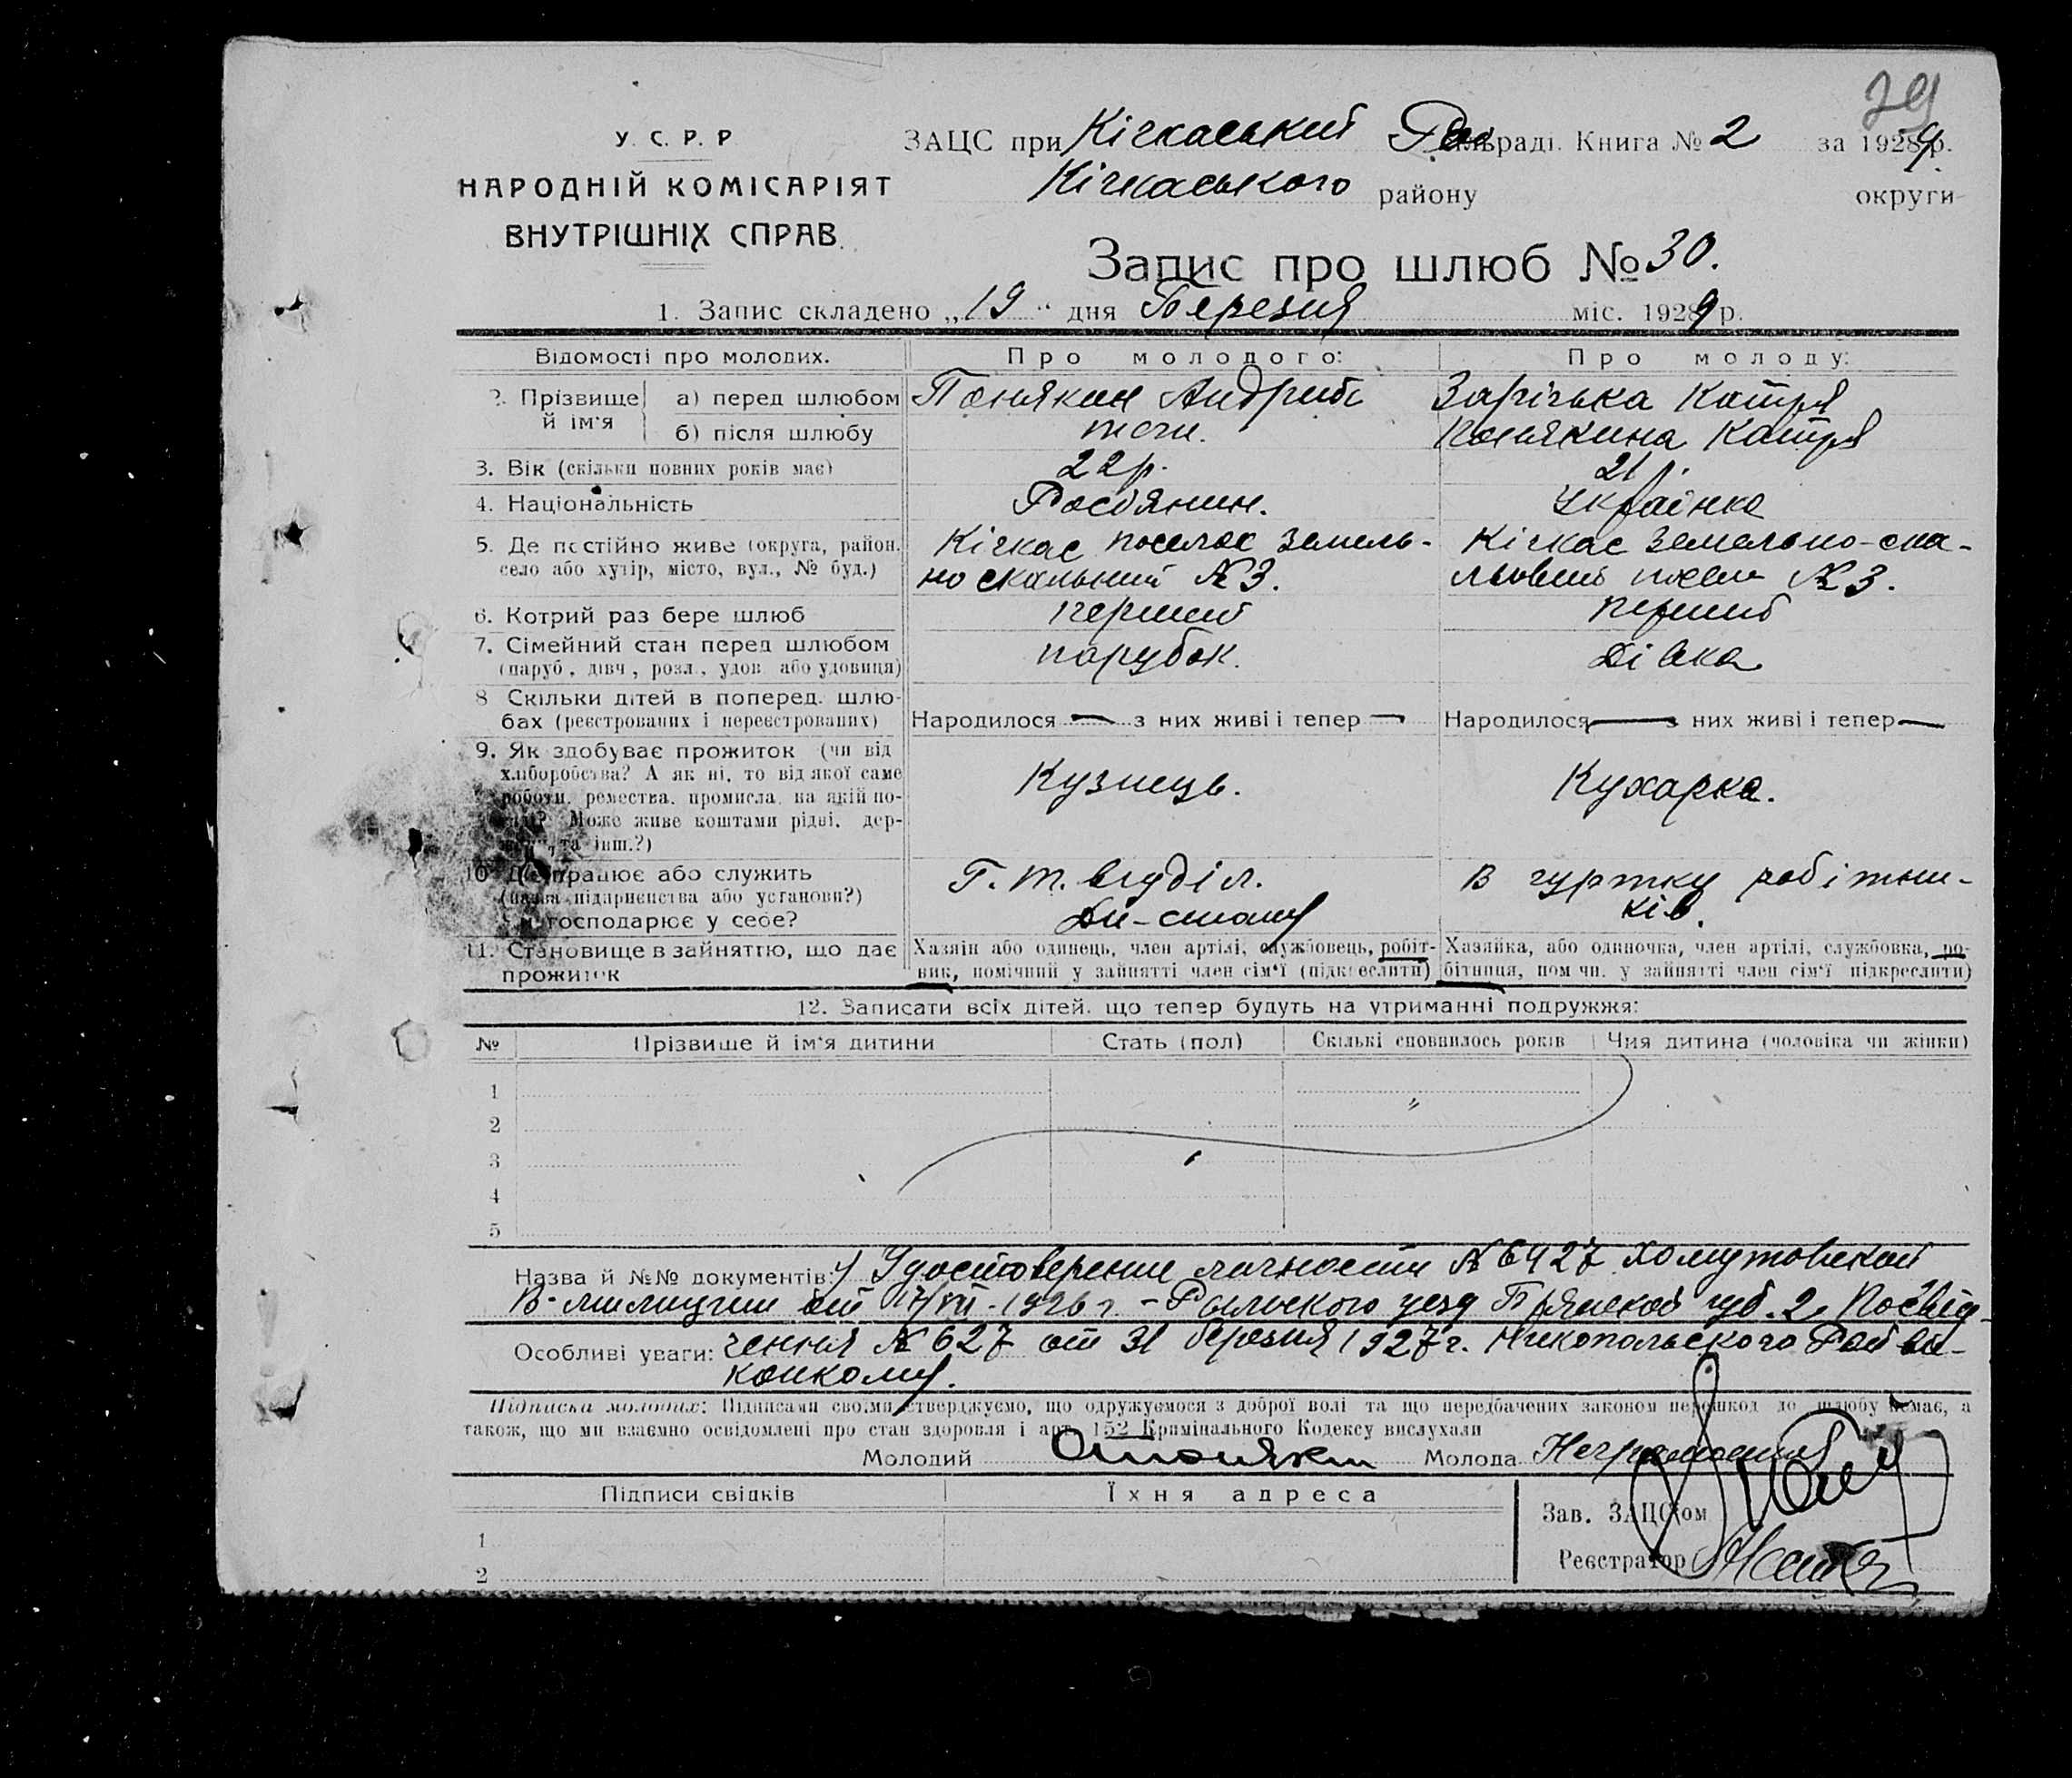 79
У. С. Р. Р
НАРОДНІЙ КОМІСАРІЯТ
ВНУТРІШНІХ СПРАВ.
ЗАЦС при Кічкаський Рай сільраді. Книга № 2 за 1929 р.
Кічкаського району округи
Запис про шлюб № 30.
1. Запис складено „19“ дня Березня міс. 1929 р.
Відомості про молодих. Про молодого: Про молоду:
2. Прізвище й ім'я а) перед шлюбом Понякин Андрій Зарічька Катря
б) після шлюбу тоги. Понякина Катря
3. Вік (скільки повних років має) 22 р. 21 р.
4. Національність Росіянин. Українка
5. Де постійно живе (округа, район, Кічкас поселок земель- Кічкас Земельно-ска-
село або хутір, місто, вул., № буд.) но скальний № 3. льовий № 3.
6. Котрий раз бере шлюб перший перший
7. Сімейний стан перед шлюбом парубок. Дівка
(паруб., дівч., розл., удов. або удовиця)
8 Скільки дітей в поперед. шлю-
бах (реєстрованих і нереєстрованих) Народилося — з них живі і тепер — Народилося — з них живі і тепер —
9. Як здобуває прожиток (чи від
хліборобства? А як ні, то від якої саме Кузнець. Кухарка.
роботи, ремества, промисла, на якій по-
саді? Може живе коштами рідні, дер-
жави та інш.?)
10 Де працює або служить Г. т. відділ. В гуртку робітни-
(назва підприємства або установи?) ків.
Чи господарює у себе?
11. Становище в зайняттю, що дає Хазяїн або одинець, член артілі, службовець, робіт- Хазяйка, або одиночка, член артілі, службовка, ро-
прожиток ник, помічний у зайнятті член сім'ї (підкреслити) бітниця, помічн. у зайнятті член сім'ї підкреслити)
12. Записати всіх дітей, що тепер будуть на утриманні подружжя:
№ Прізвище й ім'я дитини Стать (пол) Скількі сповнилось років Чия дитина (чоловіка чи жінки)
1
2
3
4
5
Назва й №№ документів: 1) Удостоверение личности № 6427 Хомутовской
В-милиции от 17/VII-1926 г. - Рыльского уезд Брянской губ. 2) Посвід-
Особливі уваги: чення № 627 от 31 березня 1927 г. Никопольского Рай ви-
конкому.
Підписка молодих: Підписами своїми стверджуємо, що одружуємося з доброї волі та що передбачених законом перешкод до шлюбу немає, а
також, що ми взаємно освідомлені про стан здоровля і арт. 152 Крамінального Кодексу вислухали
Молодий Молода Неграмотна
Підписи свідків Їхня адреса
Зав. ЗАЦС'ом
1
Реєстратор
2